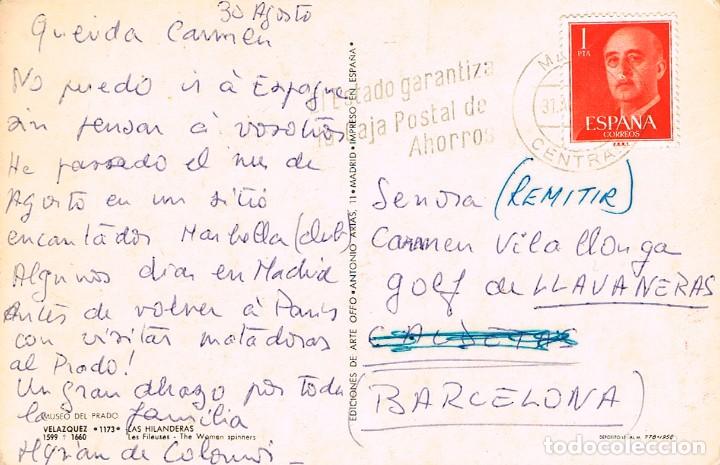 30 Agosto
Querida Carmen
No puedo ir à Espagne
sin pensar à vosotros
He passado el mes de
Agosto en un sitio
encantador Marbella (club)
Algunos dias en Madrid
antes de volver à Paris
con visitas matadoras
al Prado!
Un gran abrazo por toda
la familia
de Colonni
MUSEO DEL PRADO
VELAZQUEZ • 1173 • LAS HILANDERAS
1599 † 1660 Les Fileuses - The Women spinners
EDICIONES DE ARTE OFFO • ANTONIO ARIAS, 11 • MADRID • IMPRESO EN ESPAÑA •
El Estado garantiza
la Caja Postal de
Ahorros
MA
31.A
CENTRAL
1
PTA
ESPAÑA
CORREOS
Senora (REMITIR)
Carmen Vilallonga
golf de LLAVANERAS
CALDETAS
(BARCELONA)
DEPOSITO LEGAL M. 778-1958
todocoleccion